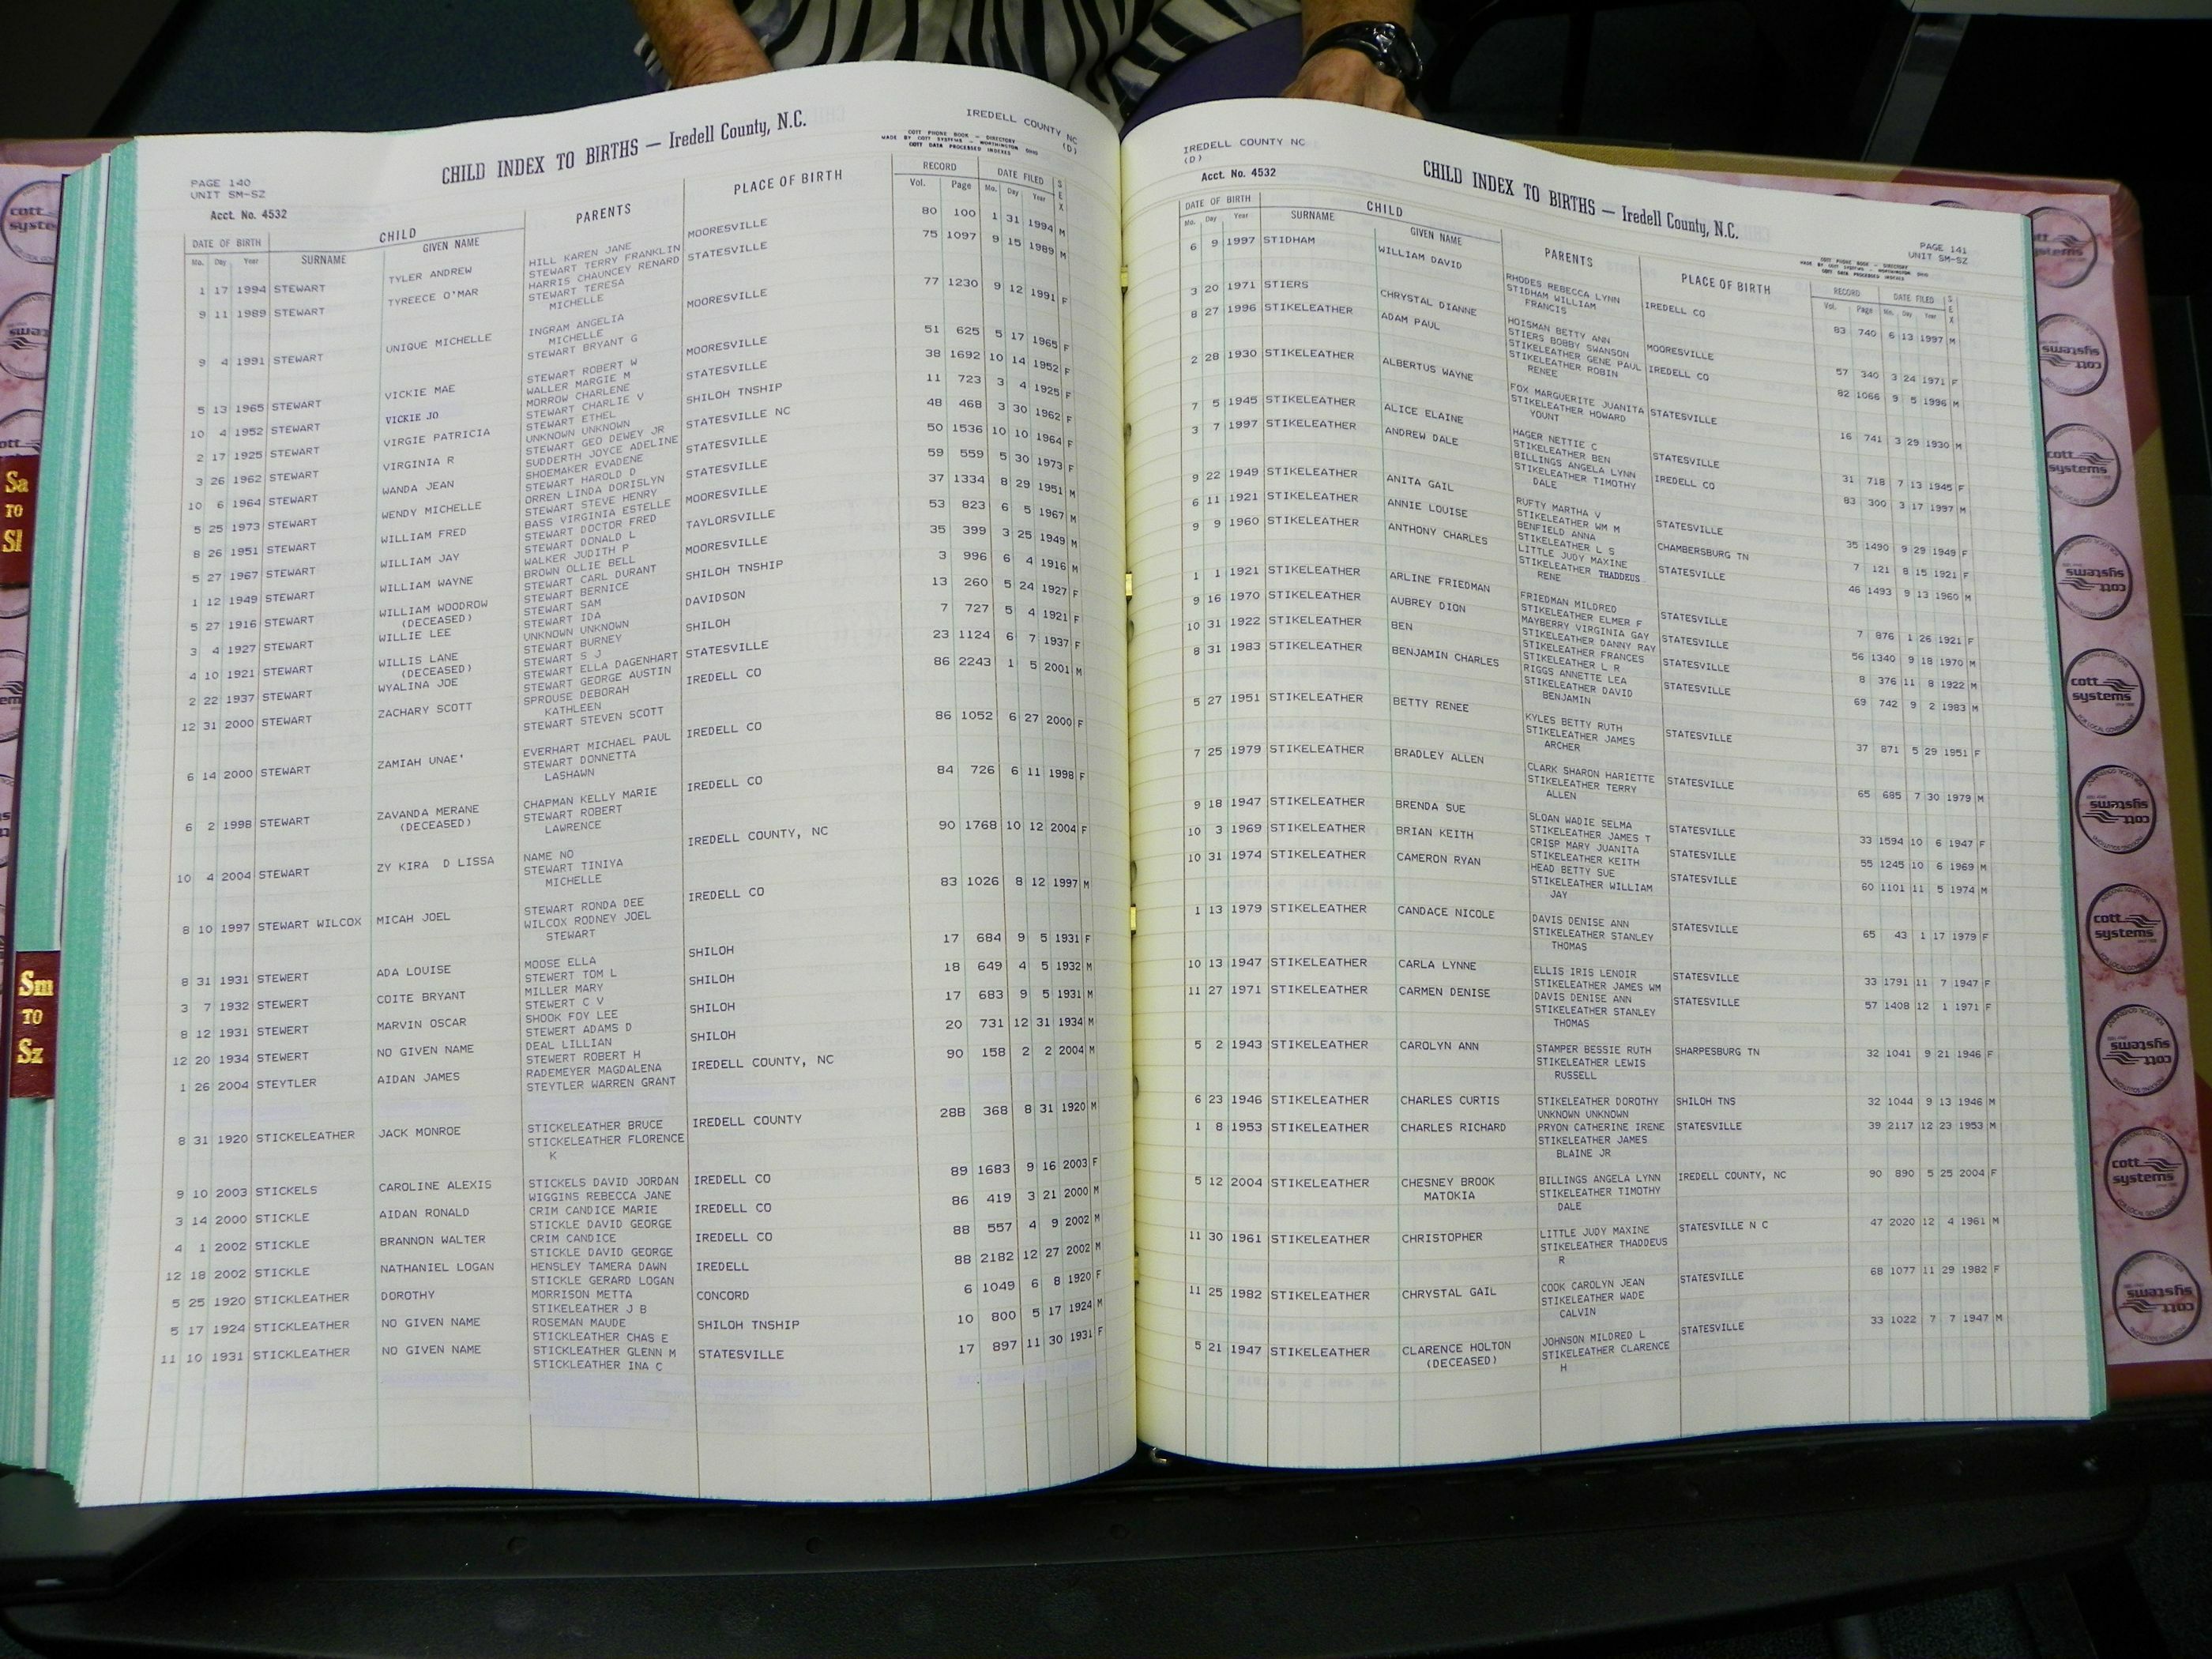 IREDELL COUNTY NC
(D)
CHILD INDEX TO BIRTHS — Iredell County, N.C.
COTT PHONE BOOK — DIRECTORY
MADE BY COTT SYSTEMS — WORTHINGTON OHIO
COTT DATA PROCESSED INDEXES
PAGE 140
UNIT SM-SZ
Acct. No. 4532
DATE OF BIRTH CHILD PARENTS PLACE OF BIRTH RECORD DATE FILED SEX
Mo. Day Year SURNAME GIVEN NAME Vol. Page Mo. Day Year
1 17 1994 STEWART TYLER ANDREW HILL KAREN JANE MOORESVILLE 80 100 1 31 1994 M
STEWART TERRY FRANKLIN
9 11 1989 STEWART TYREECE O'MAR HARRIS CHAUNCEY RENARD STATESVILLE 75 1097 9 15 1989 M
STEWART TERESA
MICHELLE
9 4 1991 STEWART UNIQUE MICHELLE INGRAM ANGELIA MOORESVILLE 77 1230 9 12 1991 F
MICHELLE
STEWART BRYANT G
5 13 1965 STEWART VICKIE MAE STEWART ROBERT W MOORESVILLE 51 625 5 17 1965 F
WALLER MARGIE M
10 4 1952 STEWART VICKIE JO MORROW CHARLENE STATESVILLE 38 1692 10 14 1952 F
STEWART CHARLIE V
2 17 1925 STEWART VIRGIE PATRICIA STEWART ETHEL SHILOH TNSHIP 11 723 3 4 1925 F
UNKNOWN UNKNOWN
3 26 1962 STEWART VIRGINIA R STEWART GEO DEWEY JR STATESVILLE NC 48 468 3 30 1962 F
SUDDERTH JOYCE ADELINE
10 6 1964 STEWART WANDA JEAN SHOEMAKER EVADENE STATESVILLE 50 1536 10 10 1964 F
STEWART HAROLD D
5 25 1973 STEWART WENDY MICHELLE ORREN LINDA DORISLYN STATESVILLE 59 559 5 30 1973 F
STEWART STEVE HENRY
8 26 1951 STEWART WILLIAM FRED BASS VIRGINIA ESTELLE MOORESVILLE 37 1334 8 29 1951 M
STEWART DOCTOR FRED
5 27 1967 STEWART WILLIAM JAY STEWART DONALD L TAYLORSVILLE 53 823 6 5 1967 M
WALKER JUDITH P
1 12 1949 STEWART WILLIAM WAYNE BROWN OLLIE BELL MOORESVILLE 35 399 3 25 1949 M
STEWART CARL DURANT
5 27 1916 STEWART WILLIAM WOODROW STEWART BERNICE SHILOH TNSHIP 3 996 6 4 1916 M
(DECEASED) STEWART SAM
3 4 1927 STEWART WILLIE LEE STEWART IDA DAVIDSON 13 260 5 24 1927 F
UNKNOWN UNKNOWN
4 10 1921 STEWART WILLIS LANE STEWART BURNEY SHILOH 7 727 5 4 1921 F
(DECEASED) STEWART S J
2 22 1937 STEWART WYALINA JOE STEWART ELLA DAGENHART STATESVILLE 23 1124 6 7 1937 F
STEWART GEORGE AUSTIN
12 31 2000 STEWART ZACHARY SCOTT SPROUSE DEBORAH IREDELL CO 86 2243 1 5 2001 M
KATHLEEN
STEWART STEVEN SCOTT
6 14 2000 STEWART ZAMIAH UNAE' EVERHART MICHAEL PAUL IREDELL CO 86 1052 6 27 2000 F
STEWART DONNETTA
LASHAWN
6 2 1998 STEWART ZAVANDA MERANE CHAPMAN KELLY MARIE IREDELL CO 84 726 6 11 1998 F
(DECEASED) STEWART ROBERT
LAWRENCE
10 4 2004 STEWART ZY KIRA D LISSA NAME NO IREDELL COUNTY, NC 90 1768 10 12 2004 F
STEWART TINIYA
MICHELLE
8 10 1997 STEWART WILCOX MICAH JOEL STEWART RONDA DEE IREDELL CO 83 1026 8 12 1997 M
WILCOX RODNEY JOEL
STEWART
8 31 1931 STEWERT ADA LOUISE MOOSE ELLA SHILOH 17 684 9 5 1931 F
STEWERT TOM L
3 7 1932 STEWERT COITE BRYANT MILLER MARY SHILOH 18 649 4 5 1932 M
STEWERT C V
8 12 1931 STEWERT MARVIN OSCAR SHOOK FOY LEE SHILOH 17 683 9 5 1931 M
STEWERT ADAMS D
12 20 1934 STEWERT NO GIVEN NAME DEAL LILLIAN SHILOH 20 731 12 31 1934 M
STEWERT ROBERT H
1 26 2004 STEYTLER AIDAN JAMES RADEMEYER MAGDALENA IREDELL COUNTY, NC 90 158 2 2 2004 M
STEYTLER WARREN GRANT
8 31 1920 STICKELEATHER JACK MONROE STICKELEATHER BRUCE IREDELL COUNTY 28B 368 8 31 1920 M
STICKELEATHER FLORENCE
K
9 10 2003 STICKELS CAROLINE ALEXIS STICKELS DAVID JORDAN IREDELL CO 89 1683 9 16 2003 F
WIGGINS REBECCA JANE
3 14 2000 STICKLE AIDAN RONALD CRIM CANDICE MARIE IREDELL CO 86 419 3 21 2000 M
STICKLE DAVID GEORGE
4 1 2002 STICKLE BRANNON WALTER CRIM CANDICE IREDELL CO 88 557 4 9 2002 M
STICKLE DAVID GEORGE
12 18 2002 STICKLE NATHANIEL LOGAN HENSLEY TAMERA DAWN IREDELL 88 2182 12 27 2002 M
STICKLE GERARD LOGAN
5 25 1920 STICKLEATHER DOROTHY MORRISON METTA CONCORD 6 1049 6 8 1920 F
STIKELEATHER J B
5 17 1924 STICKLEATHER NO GIVEN NAME ROSEMAN MAUDE SHILOH TNSHIP 10 800 5 17 1924 M
STICKLEATHER CHAS E
11 10 1931 STICKLEATHER NO GIVEN NAME STICKLEATHER GLENN M STATESVILLE 17 897 11 30 1931 F
STICKLEATHER INA C
IREDELL COUNTY NC
(D)
Acct. No. 4532
CHILD INDEX TO BIRTHS — Iredell County, N.C.
PAGE 141
UNIT SM-SZ
COTT PHONE BOOK — DIRECTORY
MADE BY COTT SYSTEMS — WORTHINGTON OHIO
COTT DATA PROCESSED INDEXES
DATE OF BIRTH CHILD PARENTS PLACE OF BIRTH RECORD DATE FILED SEX
Mo. Day Year SURNAME GIVEN NAME Vol. Page Mo. Day Year
6 9 1997 STIDHAM WILLIAM DAVID RHODES REBECCA LYNN IREDELL CO 83 740 6 13 1997 M
STIDHAM WILLIAM
FRANCIS
3 20 1971 STIERS CHRYSTAL DIANNE HOISMAN BETTY ANN MOORESVILLE 57 340 3 24 1971 F
STIERS BOBBY SWANSON
8 27 1996 STIKELEATHER ADAM PAUL STIKELEATHER GENE PAUL IREDELL CO 82 1066 9 5 1996 M
STIKELEATHER ROBIN
RENEE
2 28 1930 STIKELEATHER ALBERTUS WAYNE FOX MARGUERITE JUANITA STATESVILLE 16 741 3 29 1930 M
STIKELEATHER HOWARD
YOUNT
7 5 1945 STIKELEATHER ALICE ELAINE HAGER NETTIE C STATESVILLE 31 718 7 13 1945 F
STIKELEATHER BEN
3 7 1997 STIKELEATHER ANDREW DALE BILLINGS ANGELA LYNN IREDELL CO 83 300 3 17 1997 M
STIKELEATHER TIMOTHY
DALE
9 22 1949 STIKELEATHER ANITA GAIL RUFTY MARTHA V STATESVILLE 35 1490 9 29 1949 F
STIKELEATHER WM M
6 11 1921 STIKELEATHER ANNIE LOUISE BENFIELD ANNA CHAMBERSBURG TN 7 121 8 15 1921 F
STIKELEATHER L S
9 9 1960 STIKELEATHER ANTHONY CHARLES LITTLE JUDY MAXINE STATESVILLE 46 1493 9 13 1960 M
STIKELEATHER THADDEUS
RENE
1 1 1921 STIKELEATHER ARLINE FRIEDMAN FRIEDMAN MILDRED STATESVILLE 7 876 1 26 1921 F
STIKELEATHER ELMER F
9 16 1970 STIKELEATHER AUBREY DION MAYBERRY VIRGINIA GAY STATESVILLE 56 1340 9 18 1970 M
STIKELEATHER DANNY RAY
10 31 1922 STIKELEATHER BEN STIKELEATHER FRANCES STATESVILLE 8 376 11 8 1922 M
STIKELEATHER L R
8 31 1983 STIKELEATHER BENJAMIN CHARLES RIGGS ANNETTE LEA STATESVILLE 69 742 9 2 1983 M
STIKELEATHER DAVID
BENJAMIN
5 27 1951 STIKELEATHER BETTY RENEE KYLES BETTY RUTH STATESVILLE 37 871 5 29 1951 F
STIKELEATHER JAMES
ARCHER
7 25 1979 STIKELEATHER BRADLEY ALLEN CLARK SHARON HARIETTE STATESVILLE 65 685 7 30 1979 M
STIKELEATHER TERRY
ALLEN
9 18 1947 STIKELEATHER BRENDA SUE SLOAN WADIE SELMA STATESVILLE 33 1594 10 6 1947 F
STIKELEATHER JAMES T
10 3 1969 STIKELEATHER BRIAN KEITH CRISP MARY JUANITA STATESVILLE 55 1245 10 6 1969 M
STIKELEATHER KEITH
10 31 1974 STIKELEATHER CAMERON RYAN HEAD BETTY SUE STATESVILLE 60 1101 11 5 1974 M
STIKELEATHER WILLIAM
JAY
1 13 1979 STIKELEATHER CANDACE NICOLE DAVIS DENISE ANN STATESVILLE 65 43 1 17 1979 F
STIKELEATHER STANLEY
THOMAS
10 13 1947 STIKELEATHER CARLA LYNNE ELLIS IRIS LENOIR STATESVILLE 33 1791 11 7 1947 F
STIKELEATHER JAMES WM
11 27 1971 STIKELEATHER CARMEN DENISE DAVIS DENISE ANN STATESVILLE 57 1408 12 1 1971 F
STIKELEATHER STANLEY
THOMAS
5 2 1943 STIKELEATHER CAROLYN ANN STAMPER BESSIE RUTH SHARPESBURG TN 32 1041 9 21 1946 F
STIKELEATHER LEWIS
RUSSELL
6 23 1946 STIKELEATHER CHARLES CURTIS STIKELEATHER DOROTHY SHILOH TNS 32 1044 9 13 1946 M
UNKNOWN UNKNOWN
1 8 1953 STIKELEATHER CHARLES RICHARD PRYON CATHERINE IRENE STATESVILLE 39 2117 12 23 1953 M
STIKELEATHER JAMES
BLAINE JR
5 12 2004 STIKELEATHER CHESNEY BROOK BILLINGS ANGELA LYNN IREDELL COUNTY, NC 90 890 5 25 2004 F
MATOKIA STIKELEATHER TIMOTHY
DALE
11 30 1961 STIKELEATHER CHRISTOPHER LITTLE JUDY MAXINE STATESVILLE N C 47 2020 12 4 1961 M
STIKELEATHER THADDEUS
R
11 25 1982 STIKELEATHER CHRYSTAL GAIL COOK CAROLYN JEAN STATESVILLE 68 1077 11 29 1982 F
STIKELEATHER WADE
CALVIN
5 21 1947 STIKELEATHER CLARENCE HOLTON JOHNSON MILDRED L STATESVILLE 33 1022 7 7 1947 M
(DECEASED) STIKELEATHER CLARENCE
H
Sa
TO
Sl
Sm
TO
Sz
cott
systems